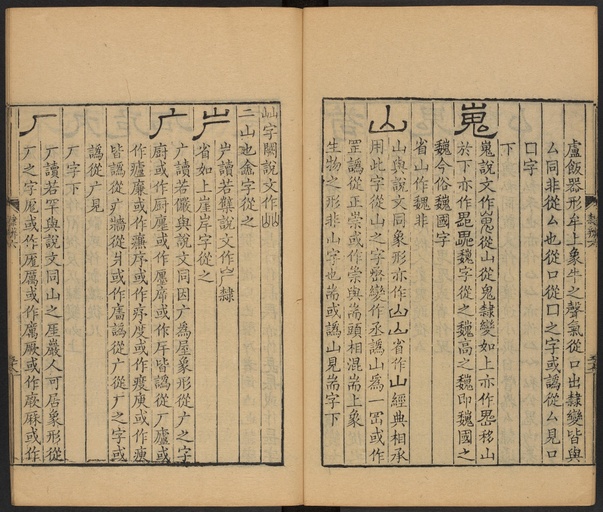 盧飯器形牟上象牛之聲氣從口出隸變皆與
厶同非從厶也從口從囗之字或譌從厶見口
囗字
下
嵬
嵬說文作嵬從山從鬼隸變如上亦作㟴移山
於下亦作魏字從之魏高之魏即魏國之
魏今俗魏國字
省山作魏非
山
山與說文同象形亦作山省作山經典相承
用此字從山之字密變作丞譌山為一岡或作
罡譌從正崇或作崈與耑頭相混耑上象
生物之形非山字也耑或譌山見耑字下
屾字闕說文作屾
二山也嵞字從之
屵
屵讀若櫱說文作屵隸
省如上崖岸字從之
广
广讀若儼與說文同因广為屋象形從广之字
廚或作厨廛或作㕓席或作㡿皆譌從厂廬或
作㾧廉或作㾾序或作㾕度或作㾊庾或作㾧
皆譌從疒牆從爿或作廧譌從广從疒之字或
譌從广見
疒字下
厂
厂讀若罕與說文同山之厓巖人可居象形從
厂之字厓或作崖厲或作廲厥或作廞厤或作